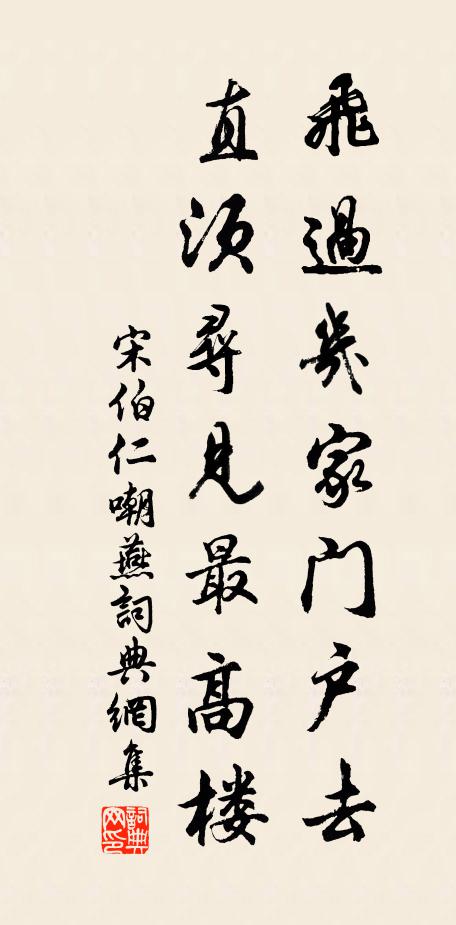 飛過幾家門户去
直須尋見最高楼
宋伯仁嘲燕詞典網集
詞典網印